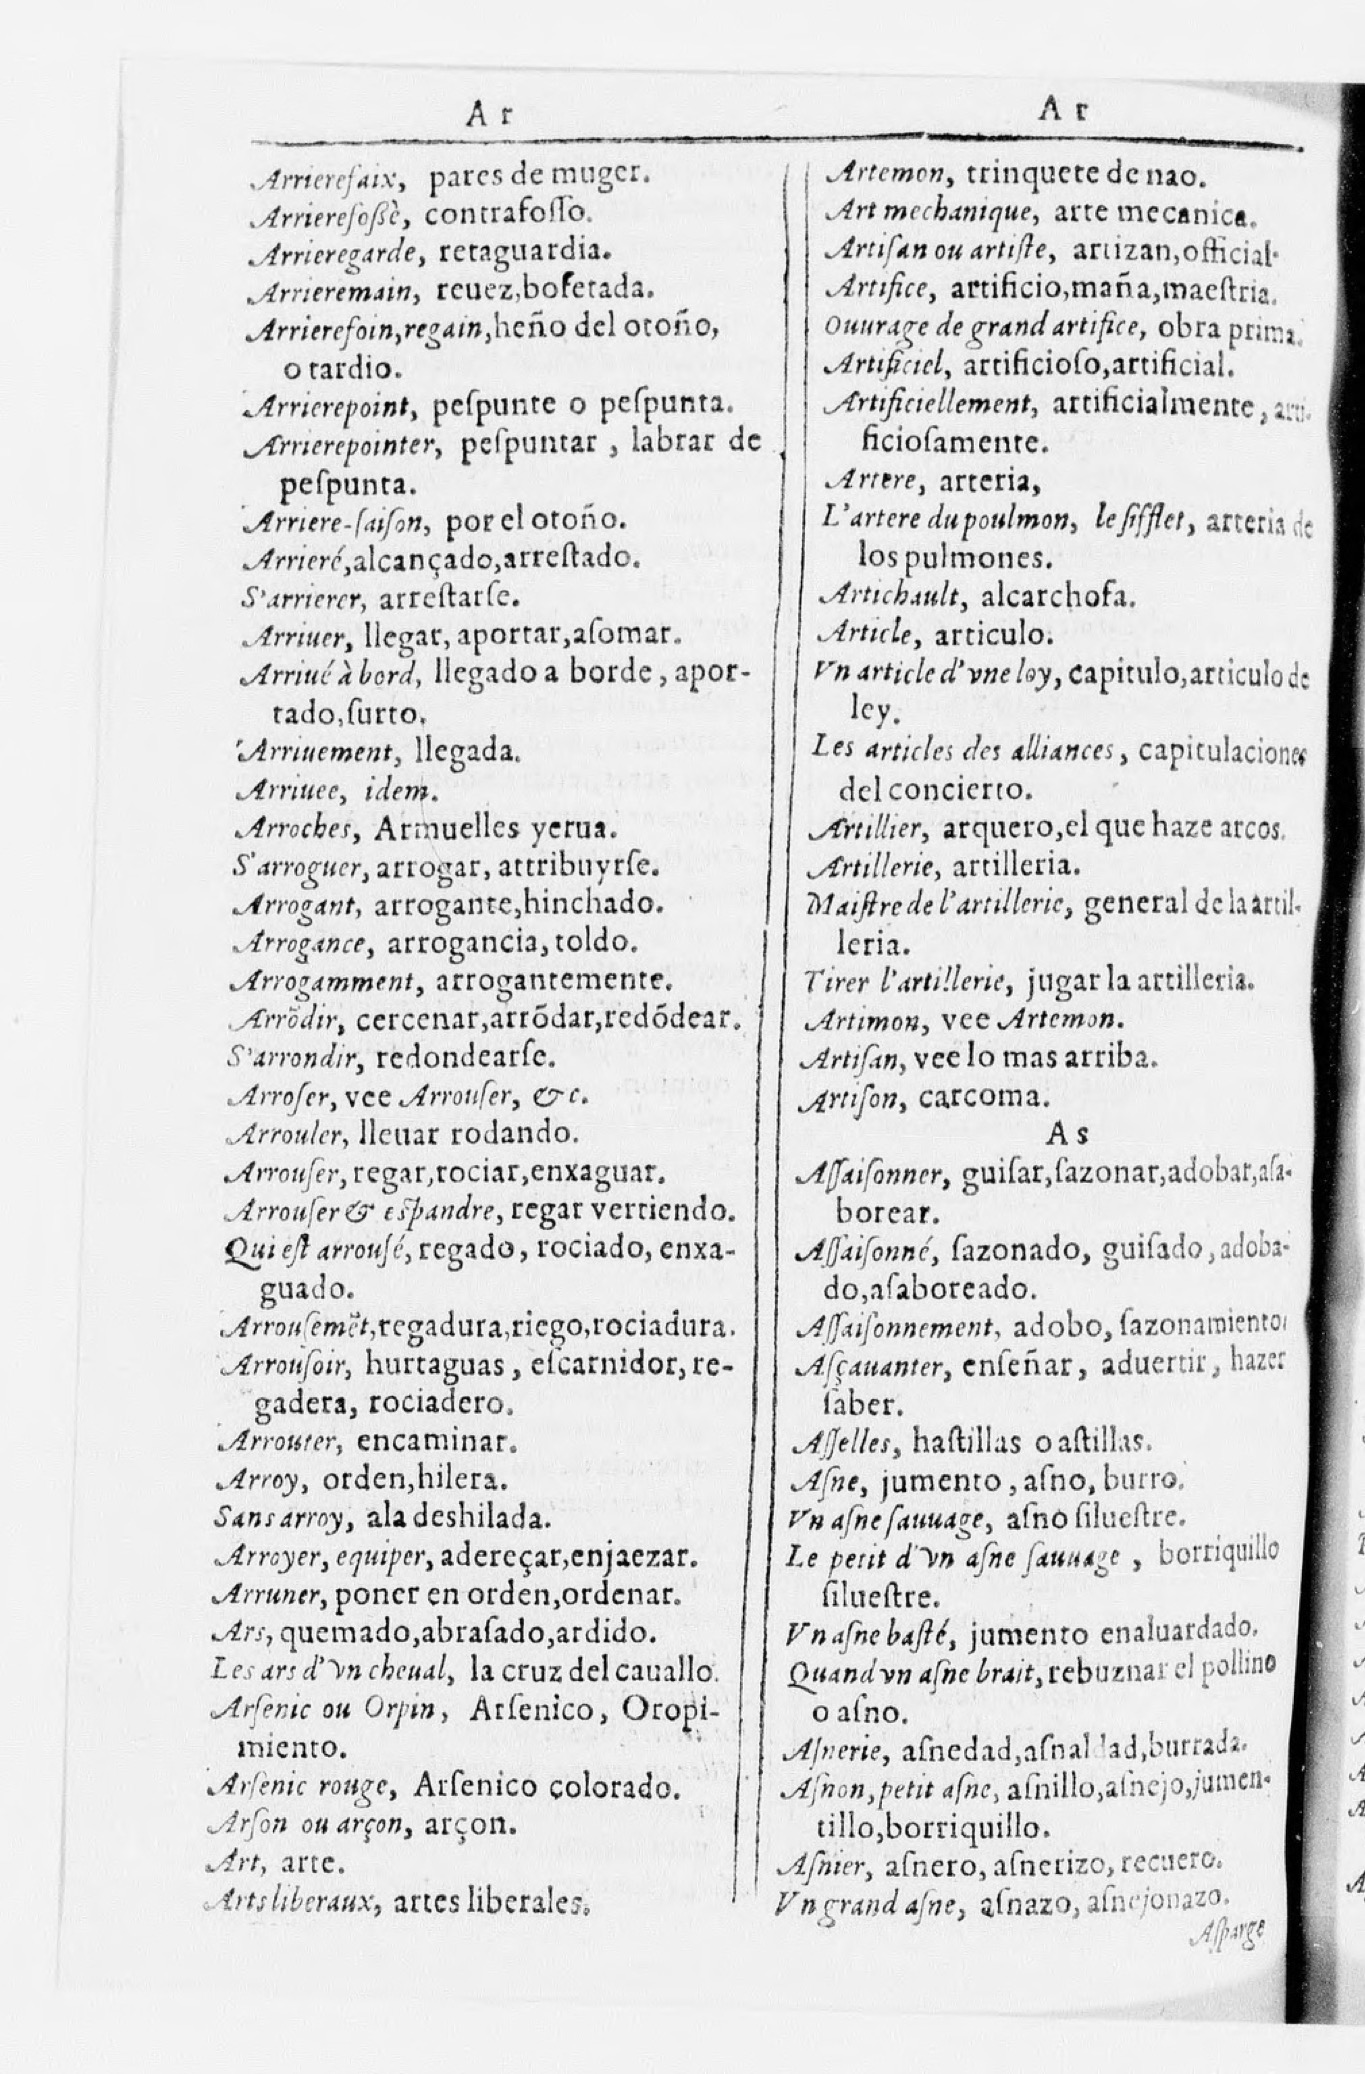 Ar
Arrierefaix, pares de muger.
Arrierefoſſè, contrafoſſo.
Arrieregarde, retaguardia.
Arrieremain, reuez,bofetada.
Arrierefoin,regain,heño del otoño,
o tardio.
Arrierepoint, peſpunte o peſpunta.
Arrierepointer, peſpuntar , labrar de
peſpunta.
Arriere-ſaiſon, por el otoño.
Arrieré,alcançado,arreſtado.
S'arrierer, arreſtarſe.
Arriuer, llegar, aportar,aſomar.
Arriué à bord, llegado a borde , apor-
tado,ſurto.
Arriuement, llegada.
Arriuee, idem.
Arroches, Armuelles yerua.
S'arroguer, arrogar, attribuyrſe.
Arrogant, arrogante,hinchado.
Arrogance, arrogancia, toldo.
Arrogamment, arrogantemente.
Arrõdir, cercenar,arrõdar,redõdear.
S'arrondir, redondearſe.
Arroſer, vee Arrouſer, &c.
Arrouler, lleuar rodando.
Arrouſer, regar,rociar,enxaguar.
Arrouſer & eſpandre, regar vertiendo.
Qui eſt arrouſé, regado, rociado, enxa-
guado.
Arrouſemẽt,regadura,riego,rociadura.
Arrouſoir, hurtaguas , eſcarnidor, re-
gadera, rociadero.
Arrouter, encaminar.
Arroy, orden,hilera.
Sans arroy, ala deshilada.
Arroyer, equiper, adereçar,enjaezar.
Arruner, poner en orden,ordenar.
Ars, quemado,abraſado,ardido.
Les ars d'vn cheual, la cruz del cauallo.
Arſenic ou Orpin, Arſenico, Oropi-
miento.
Arſenic rouge, Arſenico colorado.
Arſon ou arçon, arçon.
Art, arte.
Arts liberaux, artes liberales.
Ar
Artemon, trinquete de nao.
Art mechanique, arte mecanica.
Artiſan ou artiſte, artizan,official.
Artifice, artificio,maña,maeſtria.
Ouurage de grand artifice, obra prima.
Artificiel, artificioſo,artificial.
Artificiellement, artificialmente, arti-
ficioſamente.
Artere, arteria,
L'artere du poulmon, le ſifflet, arteria de
los pulmones.
Artichault, alcarchofa.
Article, articulo.
Vn article d'vne loy, capitulo,articulo de
ley.
Les articles des alliances, capitulaciones
del concierto.
Artillier, arquero,el que haze arcos.
Artillerie, artilleria.
Maiſtre de l'artillerie, general de la artil-
leria.
Tirer l'artillerie, jugar la artilleria.
Artimon, vee Artemon.
Artiſan, vee lo mas arriba.
Artiſon, carcoma.
As
Aſſaiſonner, guiſar,ſazonar,adobar,aſa-
borear.
Aſſaiſonné, ſazonado, guiſado, adoba-
do,aſaboreado.
Aſſaiſonnement, adobo, ſazonamiento.
Aſçauanter, enſeñar, aduertir, hazer
ſaber.
Aſſelles, haſtillas o aſtillas.
Aſne, jumento, aſno, burro.
Vn aſne ſauuage, aſno ſilueſtre.
Le petit d'vn aſne ſauuage , borriquillo
ſilueſtre.
Vn aſne baſté, jumento enaluardado.
Quand vn aſne brait, rebuznar el pollino
o aſno.
Aſnerie, aſnedad,aſnaldad,burrada.
Aſnon, petit aſne, aſnillo,aſnejo,jumen-
tillo,borriquillo.
Aſnier, aſnero, aſnerizo, recuero.
Vn grand aſne, aſnazo, aſnejonazo.
Aſparge